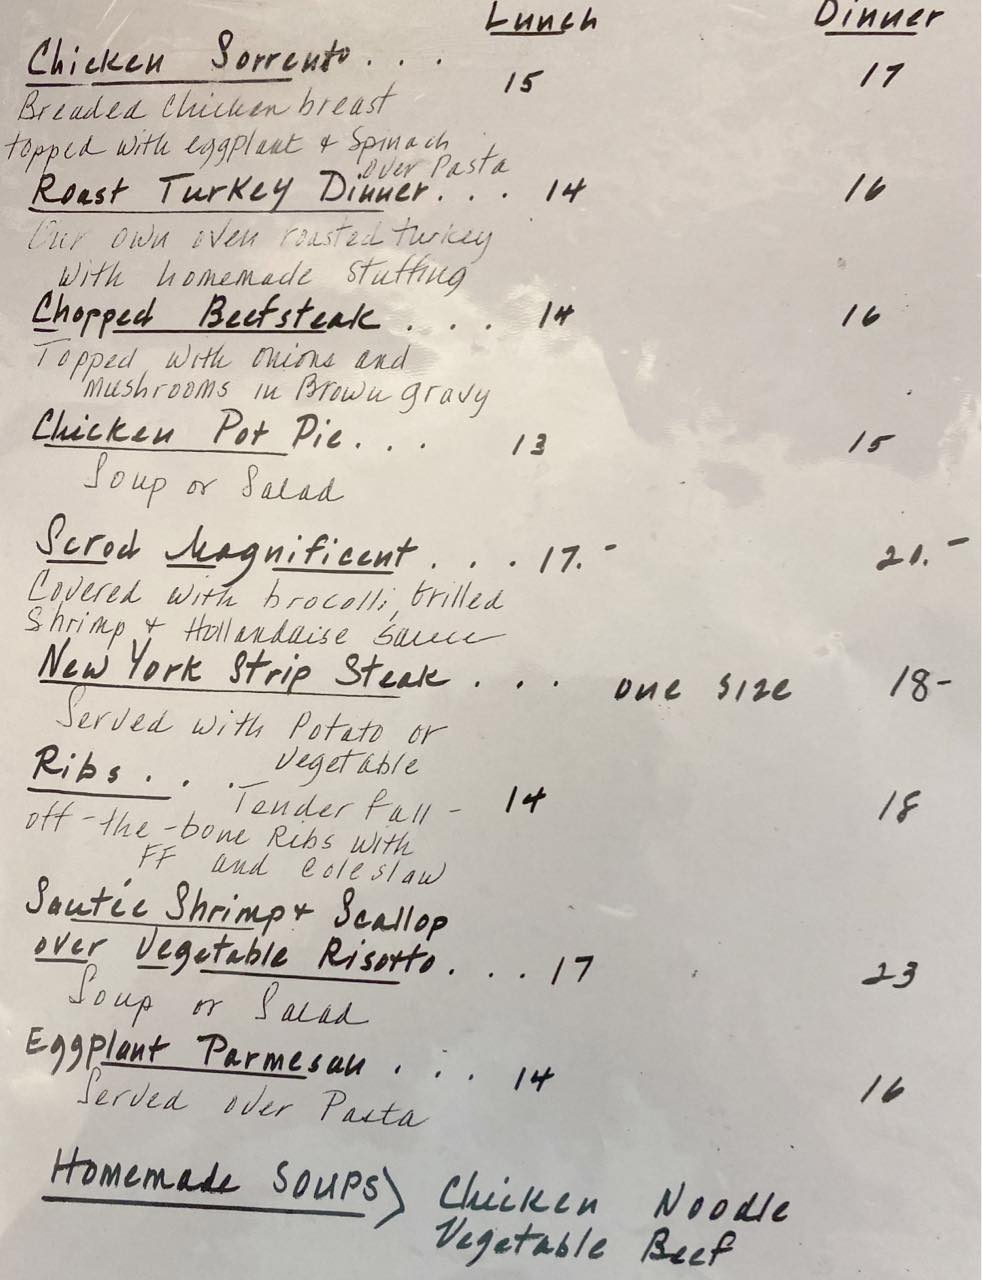 Lunch Dinner
Chicken Sorrento . . . 15 17
Breaded Chicken breast
topped with eggplant & Spinach
over Pasta
Roast Turkey Dinner . . . 14 16
Our own oven roasted turkey
with homemade stuffing
Chopped Beefsteak . . . 14 16
Topped with onions and
mushrooms in Brown gravy
Chicken Pot Pie . . . 13 15
Soup or Salad
Scrod Magnificent . . . 17.- 21.-
Covered with brocolli, Grilled
Shrimp & Hollandaise Sauce
New York Strip Steak . . . one size 18-
Served with Potato or
Vegetable
Ribs . . . 14 18
Tender fall-
off-the-bone Ribs with
FF and coleslaw
Sautée Shrimp & Scallop
over Vegetable Risotto . . . 17 23
Soup or Salad
Eggplant Parmesan . . . 14 16
Served over Pasta
Homemade SOUPS> Chicken Noodle
Vegetable Beef